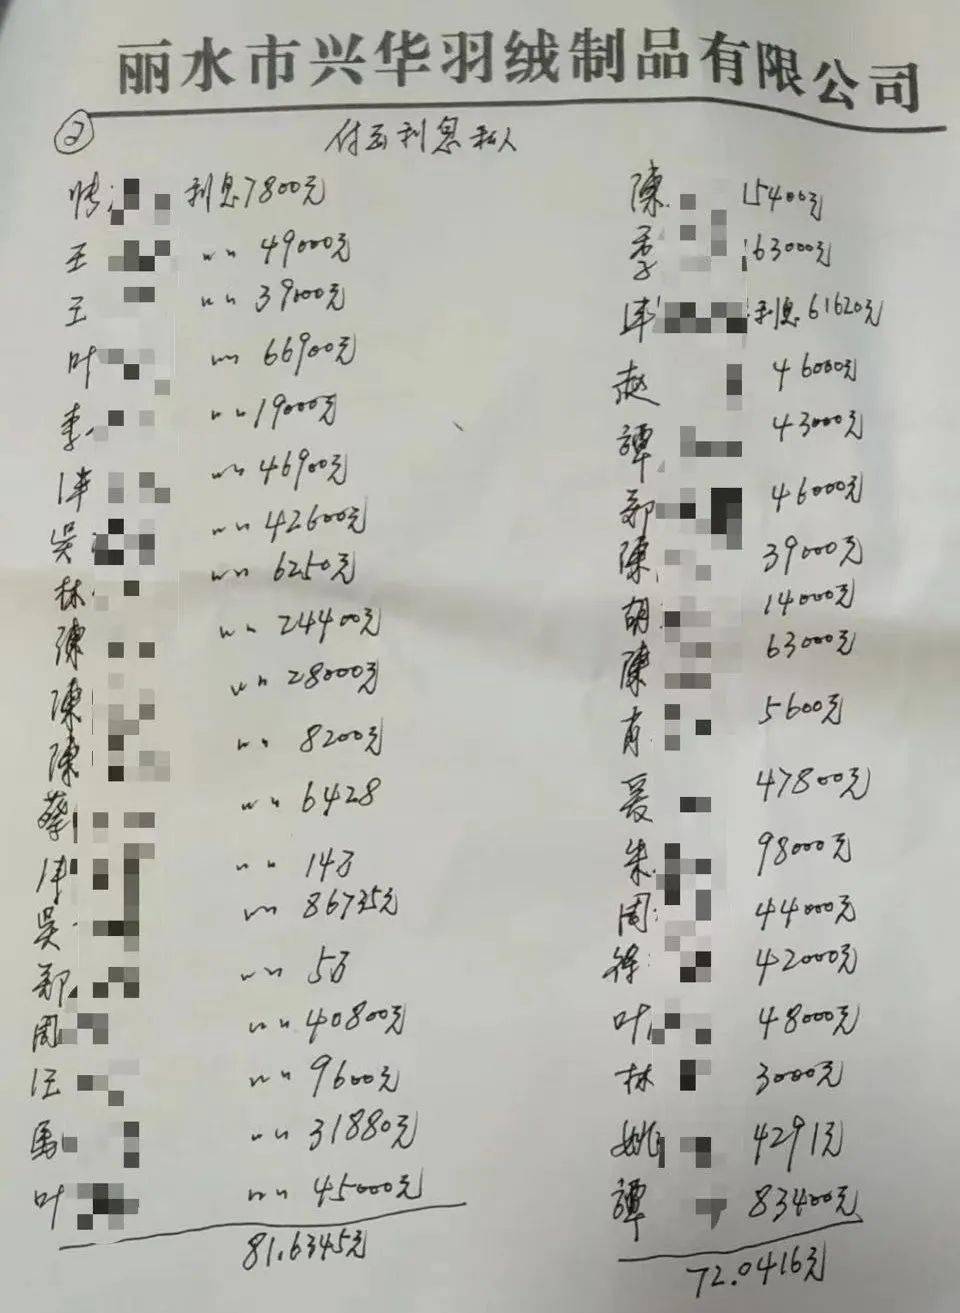 丽水市兴华羽绒制品有限公司
②
利息私人
利息7800元
王 〃〃 49000元
王 〃〃 39000元
叶 〃〃 66900元
李 〃〃 19000元
〃〃 46900元
吳 〃〃 42600元
林 〃〃 6250元
陳 〃〃 24400元
陳 〃〃 28000元
陳 〃〃 8200元
蔡 〃〃 6428
〃〃 14万
吳 〃〃 86735元
郑 〃〃 5万
周 〃〃 40800元
汪 〃〃 9600元
馬 〃〃 31880元
叶 〃〃 45000元
81.6345元
陳 15400元
季 63000元
利息 61620元
赵 46000元
譚 43000元
郑 46000元
陳 39000元
胡 14000元
陳 63000元
肖 5600元
47800元
朱 98000元
周 44000元
徐 42000元
叶 48000元
林 3000元
姚 4291元
譚 83400元
72.0416元